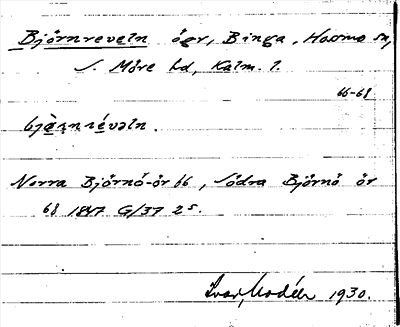 Björnreveln ögr, Binga, Hossmo sn,
S. Möre hd, Kalm. l.
66-68
bjö̀rnrévəln.
Norra Björnö-ör 66, Södra Björnö ör
68 1847 G/37 2⁵.
Ivar Modéer 1930.